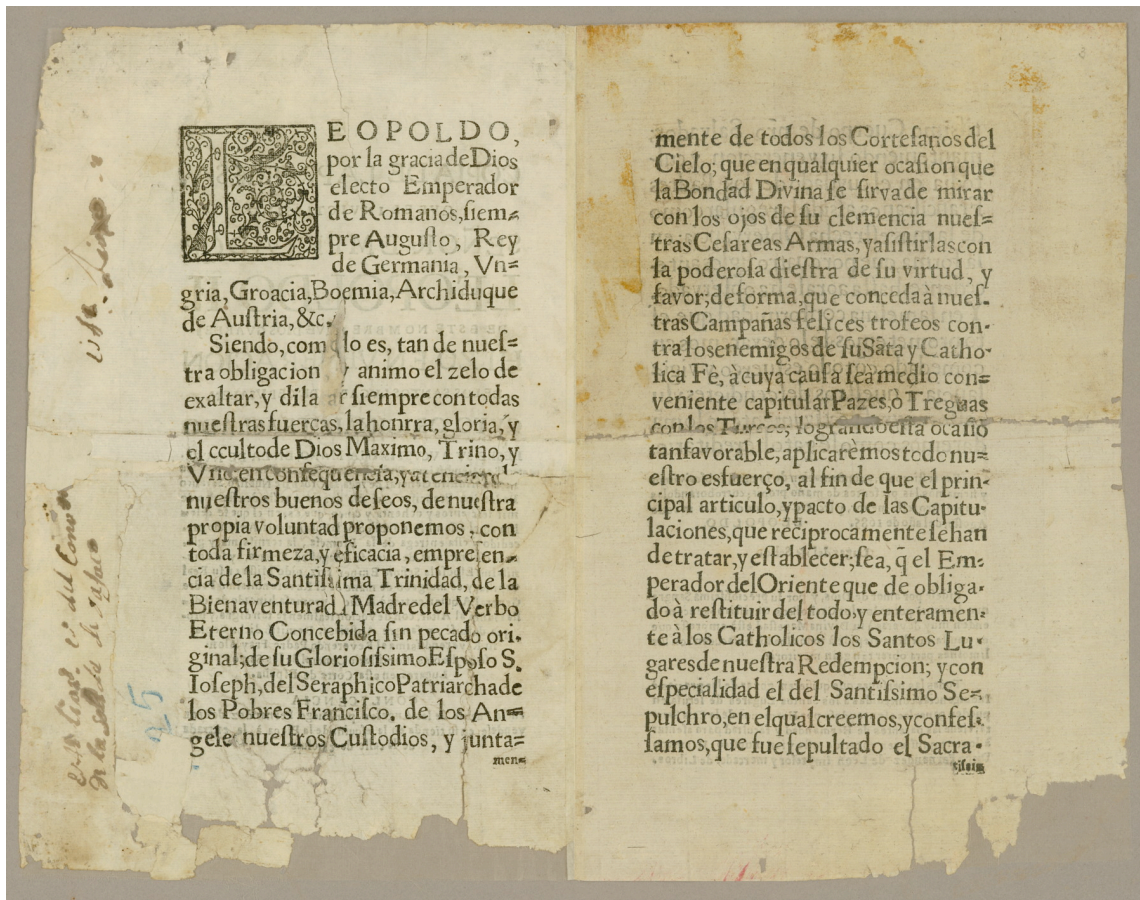 LEOPOLDO,
por la gracia de Dios
electo Emperador
de Romanos, siem-
pre Augusto, Rey
de Germania, Vn=
gria, Groacia, Boemia, Archiduque
de Austria, &c.
Siendo, com lo es, tan de nues=
tra obligacion y animo el zelo de
exaltar, y dila ar siempre con todas
nuestras fuerças, la honrra, gloria, y
el cculto de Dios Maximo, Trino, y
Vno; en consequencia, y
nuestros buenos deseos, de nuestra
propia voluntad proponemos, con
toda firmeza, y eficacia, en presen-
cia de la Santissima Trinidad, de la
Bienaventurad Madre del Verbo
Eterno Concebida sin pecado ori-
ginal; de su Gloriosissimo Esposo S.
Ioseph, del Seraphico Patriarcha de
los Pobres Francisco, de los An=
gele nuestros Custodios, y junta=
men=
25
mente de todos los Cortesanos del
Cielo; que en qualquier ocasion que
la Bondad Divina se sirva de mirar
con los ojos de su clemencia nues=
tras Cesareas Armas, y asistirlas con
la poderosa diestra de su virtud, y
favor; de forma, que conceda à nues-
tras Campañas felices trofeos con-
tra los enemigos de su Sãta y Catho-
lica Fè, à cuya causa sea medio con=
veniente capitular Pazes, ò Treguas
con los Turcos; logrando esta ocasiõ
tan favorable, aplicarèmos todo nu=
estro esfuerço, al fin de que el prin-
cipal articulo, y pacto de las Capitu-
laciones, que reciprocamente se han
de tratar, y establecer; sea, q̃ el Em-
perador del Oriente que de obliga-
do à restituir del todo, y enteramen-
te à los Catholicos los Santos Lu-
gares de nuestra Redempcion; y con
especialidad el del Santissimo Se-
pulchro, en el qual creemos, y confes-
samos, que fue sepultado el Sacra-